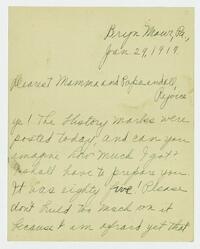 Bryn Mawr, Pa.,
Jan 29, 1919.
Dearest Mamma and Papa and all,
Rejoice
ye! The History marks were
posted today, and can you
imagine how much I got?
I shall have to prepare you.
It was eighty five! Please
don't build too much on it
because I am afraid yet that